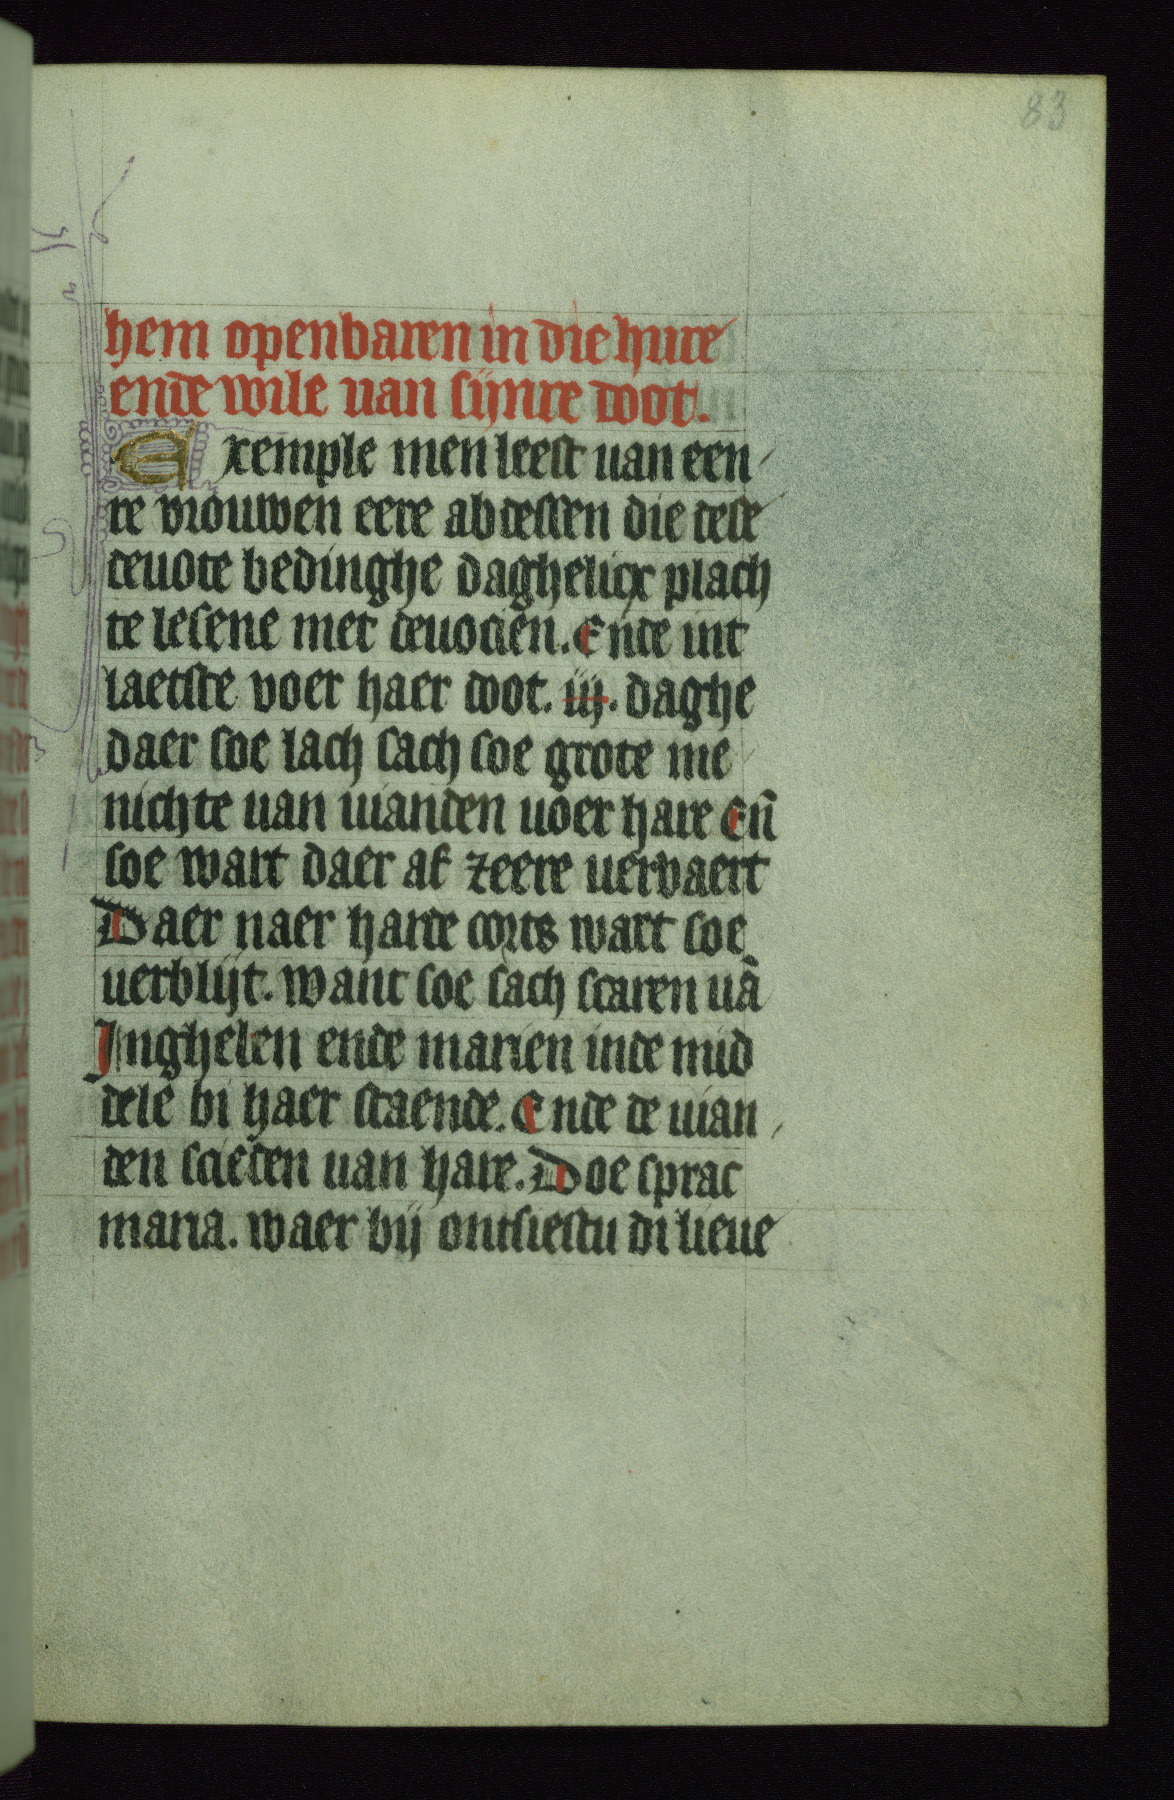 83
hem openbaren in die hure
ende wile van sijnre doot.
Exemple men leest van een
re vrouwen eere abdessen die dese
deuote bedinghe daghelicx plach
te lesene met deuocien. Ende int
laetste voer haer doot. iij. daghe
daer soe lach sach soe grote me
nichte van uianden uoer hare En̄
soe wart daer af zeere uervaert
Daer naer harde corts wart soe
uerblijt. want soe sach scaren uā
Inghelen ende marien inde mid
dele bi haer staende. Ende de uian
den scieden van hare. Doe sprac
maria. waer bij ontsiestu di lieue